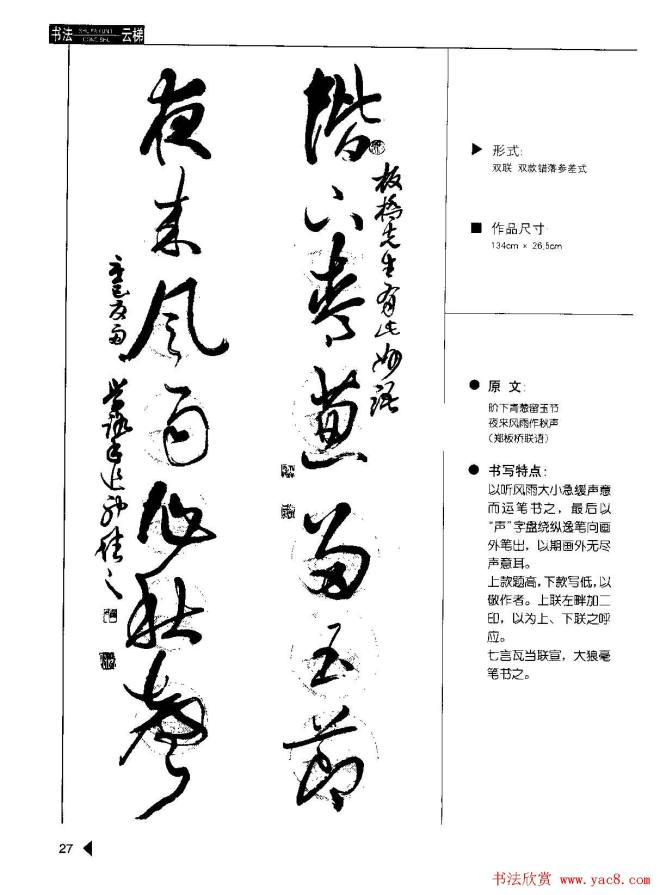 书法云梯
階下青蔥留玉節
板橋先生有此妙語
夜来风雨作秋聲
形式:
双联 双款错落参差式
作品尺寸:
134cm × 26.5cm
原 文:
阶下青葱留玉节
夜来风雨作秋声
(郑板桥联语)
书写特点:
以听风雨大小急缓声意
而运笔书之，最后以
“声”字盘绕纵逸笔向画
外笔出，以期画外无尽
声意耳。
上款题高，下款写低，以
敬作者。上联左畔加二
印，以为上、下联之呼
应。
七言瓦当联宣，大狼毫
笔书之。
27
书法欣赏 www.yac8.com